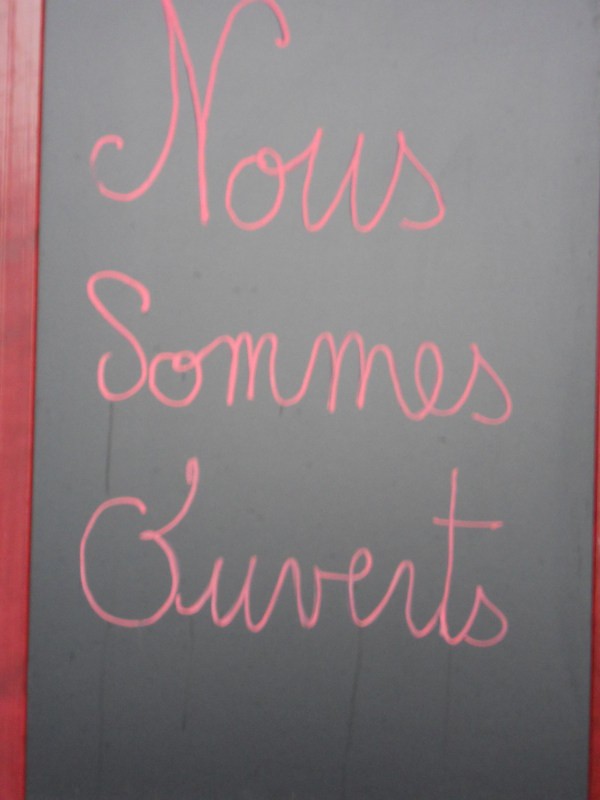 Nous
Sommes
Ouverts